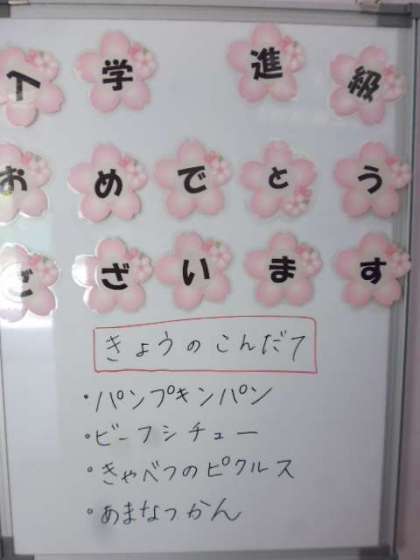 入学 進級
おめでとう
ございます
きょうのこんだて
・パンプキンパン
・ビーフシチュー
・きゃべつのピクルス
・あまなつかん